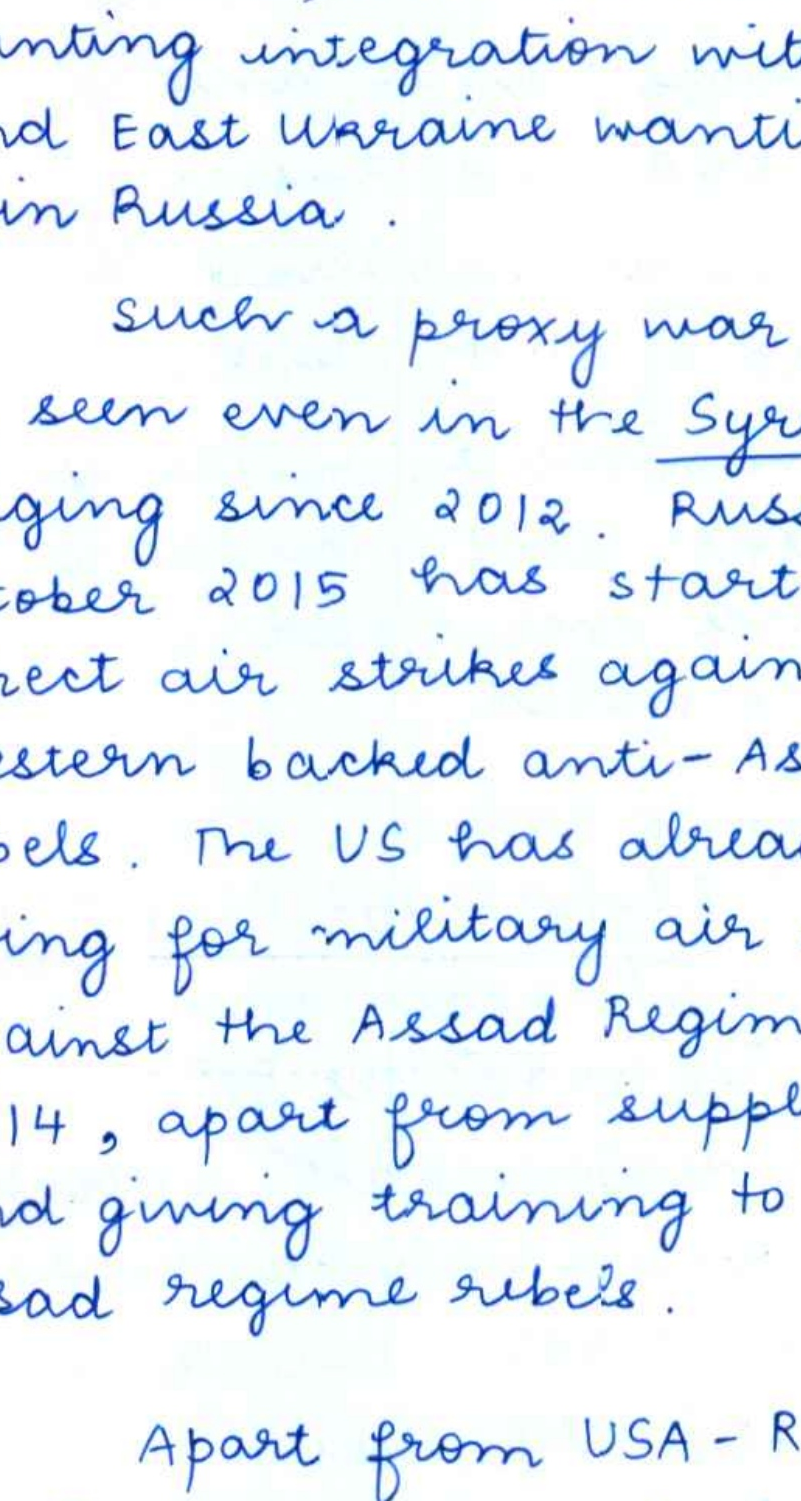 nting integration wit
nd East Ukraine wanti
in Russia .
such a proxy war
seen even in the Syr
ging since 2012. Russ
tober 2015 has start
rect air strikes again
estern backed anti- As
bels. The US has alrea
ing for military air
ainst the Assad Regim
14, apart from suppl
nd giving training to
sad regime rebels.
Apart from USA - R